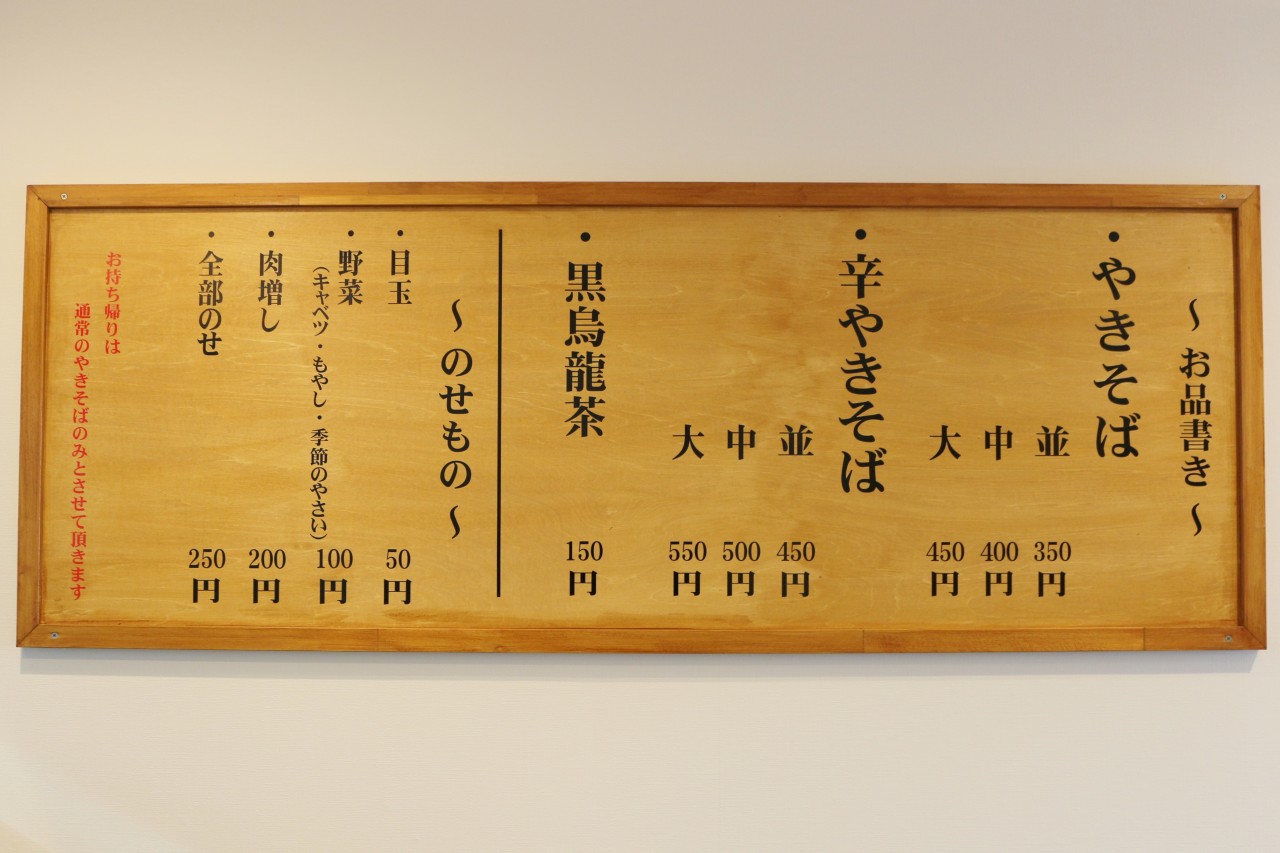 ～お品書き～
・やきそば
並 350円
中 400円
大 450円
・辛やきそば
並 450円
中 500円
大 550円
・黒烏龍茶 150円
～のせもの～
・目玉 50円
・野菜 100円
（キャベツ・もやし・季節のやさい）
・肉増し 200円
・全部のせ 250円
お持ち帰りは
通常のやきそばのみとさせて頂きます